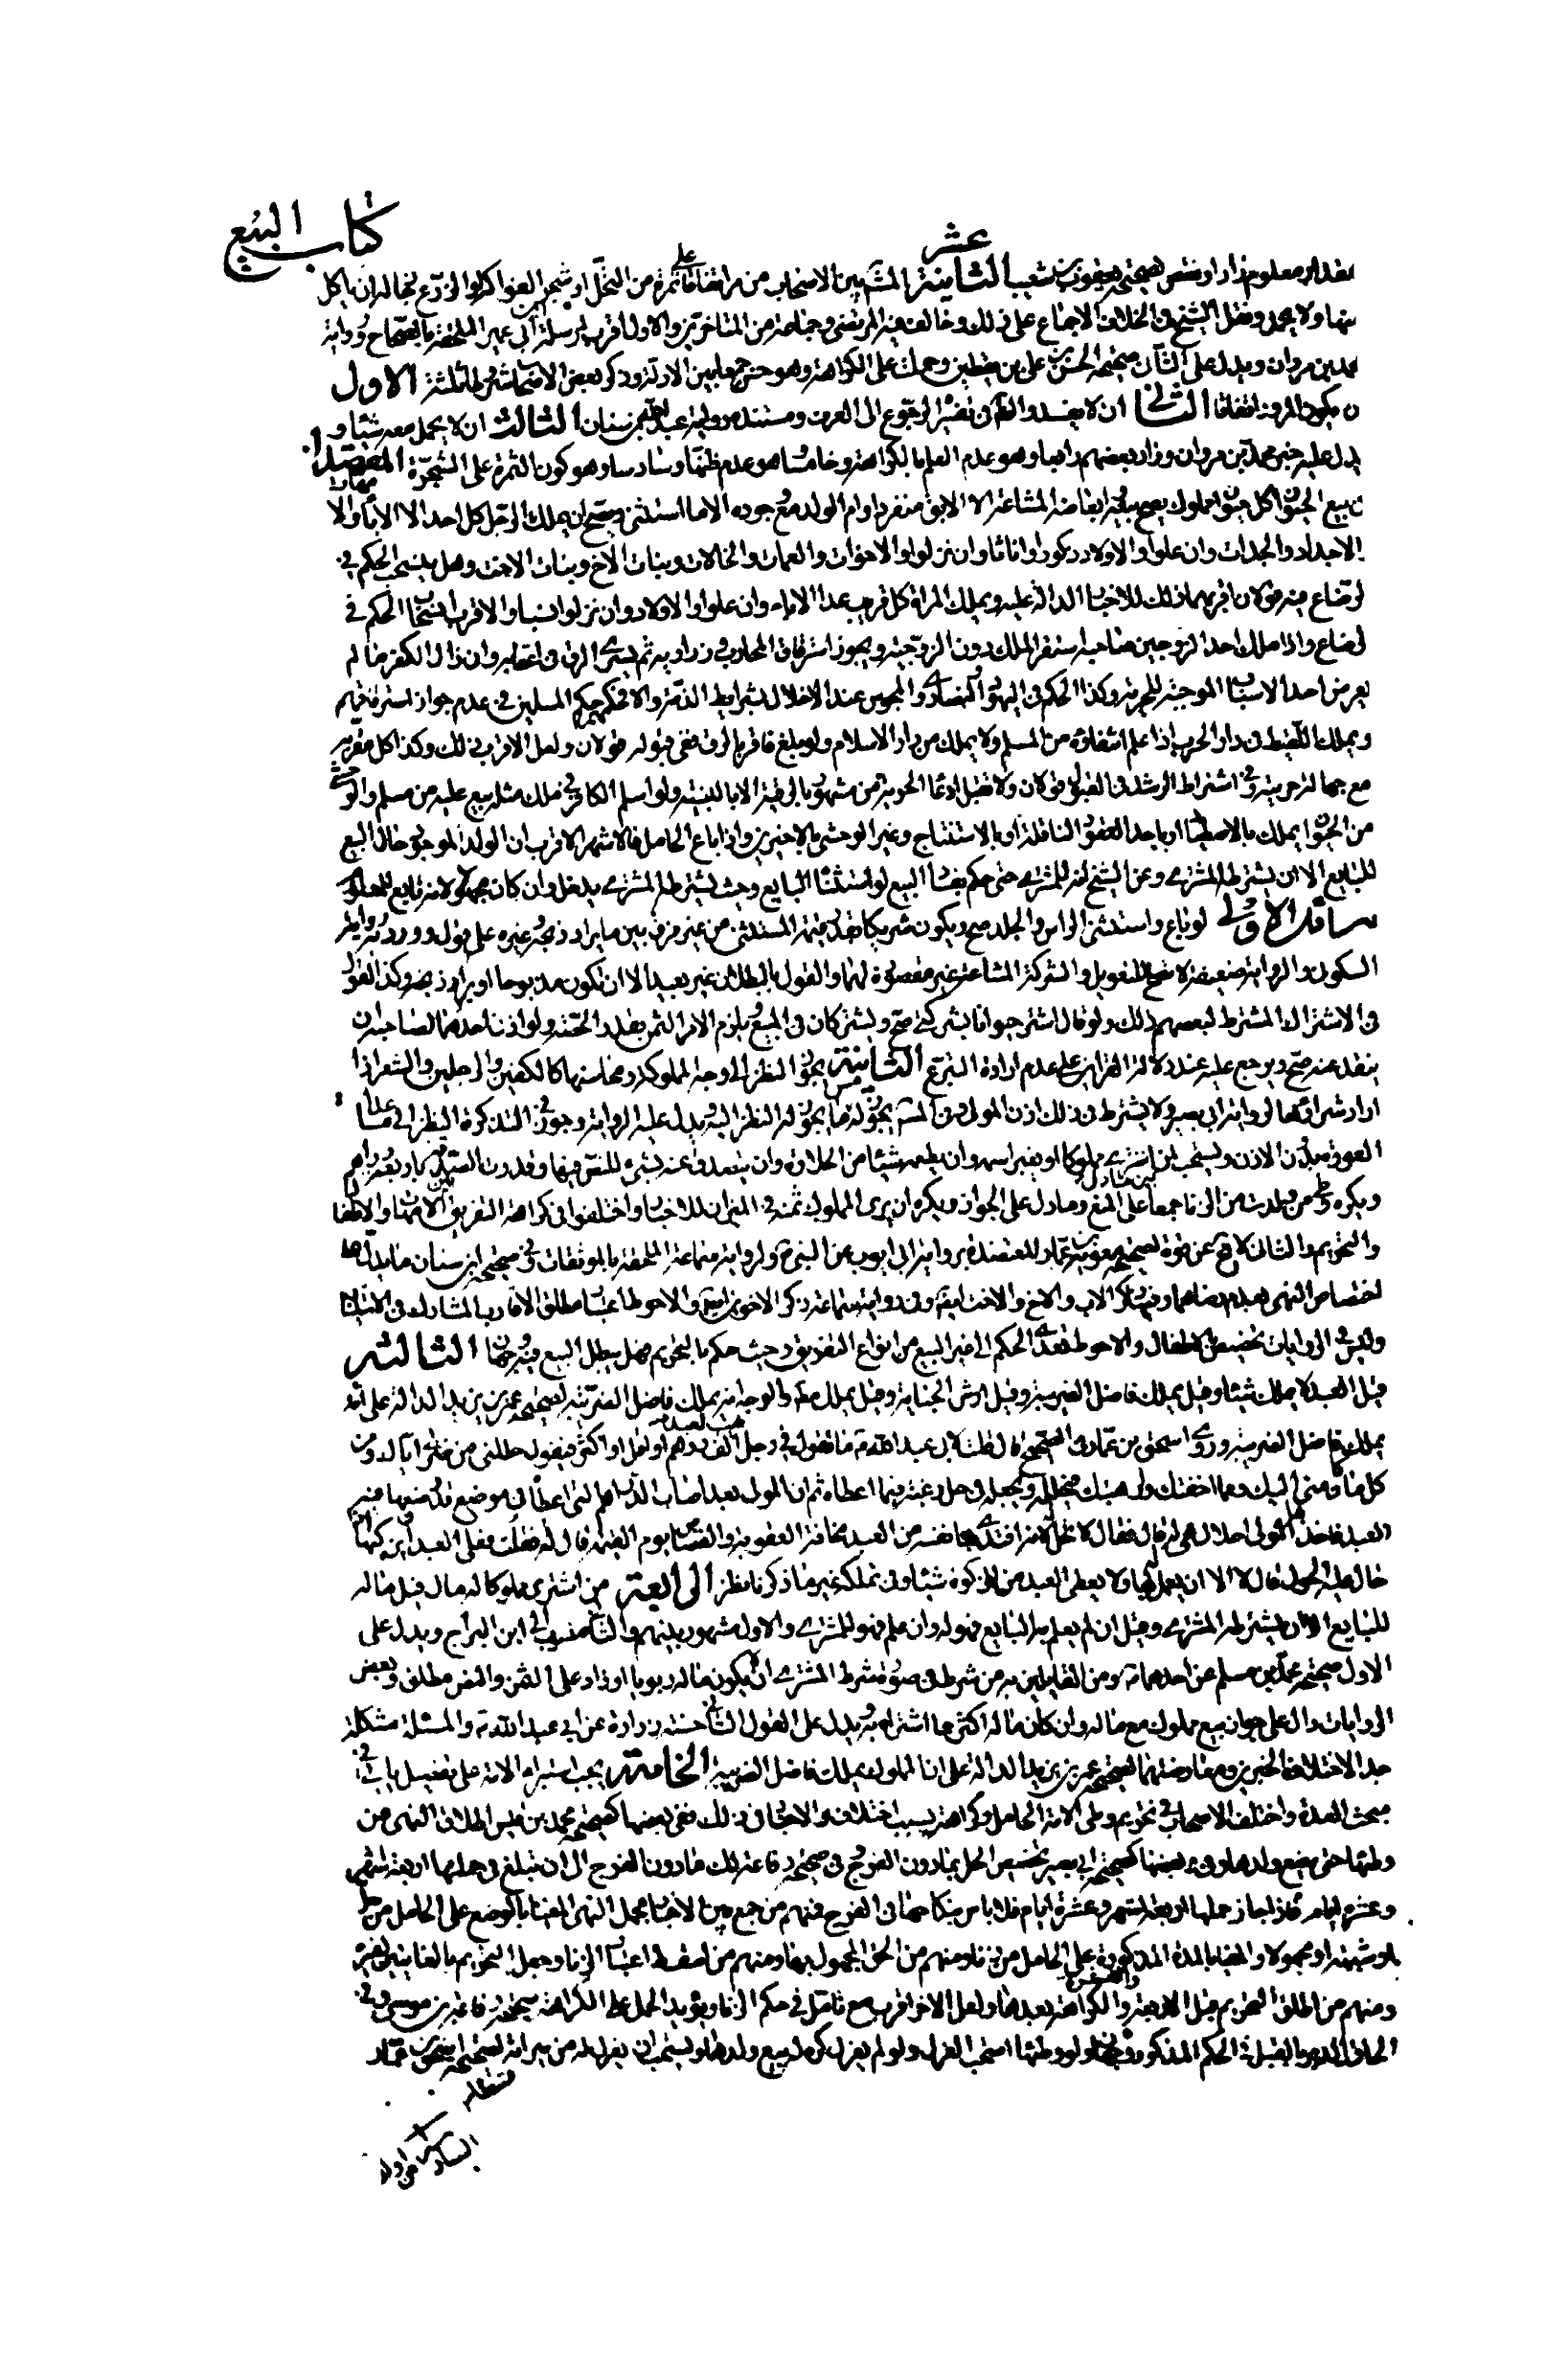 كتاب البيع
بمقدار معلوم زاد او نقص لصحيحة يعقوب بن شعيب الثامنة عشر المشهور بين الاصحاب من مر اتفاقا على ثمرة من النخل او شجر الفواكه او الزرع جاز له ان ياكل
منها ولا يحمل ونقل الشيخ في الخلاف الاجماع على ذلك وخالف فيه المرتضى وجماعة من المتاخرين والاول اقرب لمرسلة ابن ابي عمير الملحقة بالصحاح ورواية
محمد بن مروان ويدل على الثاني صحيحة الحسن بن علي بن يقطين وحملت على الكراهة وهو حسن جمعا بين الادلة وذكر بعض الاصحاب شروطا ثلثة الاول
ان يكون المرور اتفاقا الثاني ان لا يفسد والظ في تفسيره الرجوع الى العرف ومستنده رواية عبد الله بن سنان الثالث ان لا يحمل معه شيئا و
يدل عليه خبر محمد بن مروان وزاد بعضهم رابعا وهو عدم العلم بالكراهة وخامسا هو عدم ظنها وسادسا وهو كون الثمرة على الشجرة المقصد
في بيع الحيوان كل حيوان مملوك يصح بيعه وابعاضه المشاعة الا الابق منفردا وام الولد مع وجوده الا ما استثنى ويصح ان يملك الرجل كل احد الا الاباء والا
الاجداد والجدات وان علوا والاولاد ذكورا واناثا وان نزلوا والاخوات والعمات والخالات وبنات الاخ وبنات الاخت وهل ينسحب الحكم في
الرضاع فيه قولان اقربهما ذلك للاخبار الدالة عليه ويملك المراة كل قريب عدا الاباء وان علوا والاولاد وان نزلوا نسبا والاقرب انسحاب الحكم في
الرضاع واذا ملك احد الزوجين صاحبه استقر الملك دون الزوجية ويجوز استرقاق المحارب وذراريه ثم يسري الرق في اعقابه وان زال الكفر ما لم
يعرض احد الاسباب الموجبة للحرية وكذا الحكم في اليهود والنصارى والمجوس عند الاخلال بشرايط الذمة والا فحكمهم حكم المسلمين في عدم جواز استرقاقهم
ويملك اللقيط في دار الحرب اذا علم انتفاؤه من المسلم ولا يملك من دار الاسلام ولو بلغ فاقر بالرق ففي قبوله قولان ولعل الاقرب ذلك وكذا كل مقر به
مع جهالة حريته وفي اشتراط الرشد في القبول قولان ولا تقبل ادعاء الحرية من مشهور بالرقية الا بالبينة ولو اسلم الكافر في ملك مثله بيع عليه من مسلم والوحشي
من الحيوان يملك بالاصطياد او باحد العقود الناقلة او بالاستنتاج وغير الوحشي بالاخيرين واذا باع الحامل فالاشهر الاقرب ان الولد الموجود حال البيع
للبايع الا ان يشترطه المشتري وعن الشيخ انه للمشتري حتى حكم بفساد البيع لو استثناه البايع وحيث يشترطه المشتري يدخل وان كان مجهولا لانه تابع للمعلوم
مسائل الاولى لو باع واستثنى الراس والجلد صح ويكون شريكا بقدر قيمة المستثنى من غير فرق بين ما يراد ذبحه وغيره على قول وورد به رواية
السكوني والرواية ضعيفة لا تصلح للتعويل والشركة المشاعة غير مقصودة لهما والقول بالبطلان غير بعيد الا ان يكون مذبوحا او يراد ذبحه وكذا القول
في الاشتراك المشترط لبعضهم ذلك ولو قال اشتر حيوانا بشركتي صح ويشتركان في المبيع ويلزم الامر الثمن بقدر الحصة ولو اذن احدهما لصاحبه ان
ينقد عنه صح ويرجع عليه عند دلالة القراين على عدم ارادة التبرع الثانية يجوز النظر الى وجه المملوكة ومحاسنها كالكفين والرجلين والشعر اذا
اراد شرائها لرواية ابي بصير ولا يشترط في ذلك اذن المولى ومن المس يجوز له ما يجوز له النظر اليه ويدل عليه الرواية وجوز في التذكرة النظر الى ما عدا
العورة بدون الاذن ويستحب لمن اشترى مملوكا ان يغير اسمه وان يطعمه شيئا من الحلاوة وان يتصدق عنه بشيء للنص فيها وقدرت الصدقة باربعة دراهم
ويكره وطي من ولدت من الزنا جمعا بين ما دل على المنع وما دل على الجواز ويكره ان يرى المملوك ثمنه في الميزان للاخبار واختلفوا في كراهة التفريق بين الامهات والاطفال
والتحريم والثاني لا يخ عن قوة لصحيحة معوية بن عمار المعتضدة برواية ابي ايوب عن النبي ص ولرواية سماعة الملحقة بالموثقات وفي صحيحة ابن سنان ما يدل على
اختصاص النهي بعدم رضاهما وفيها ذكر الاب والاخ والاخت ايضا وفي رواية سماعة ذكر الاخوين ايضا والاحوط اعتبار مطلق الاقارب المشارك في الاستيناس
وليس في الروايات تخصيص بالاطفال والاحوط تعدي الحكم الى غير البيع من انواع التفريق وحيث حكم بالتحريم فهل يبطل البيع فيه وجهان الثالثة
قيل العبد لا يملك شيئا وقيل يملك فاضل الضريبة وقيل ارش الجناية وقيل يملك مطلقا والوجه انه يملك فاضل الضريبة لصحيحة عمر بن يزيد الدالة على انه
يملك فاضل الضريبة وروى اسحق بن عمار في الصحيح قال قلت لابي عبد الله ع ما تقول في رجل يهب لعبده الف درهم او اقل او اكثر فيقول حللني من ضربي اياك ومن
كل ما كان مني اليك ومما اخفتك وارهبتك فيحلله ويجعله في حل رغبة فيما اعطاه ثم ان المولى بعد اصاب الدراهم التي اعطاه في موضع قد وضعها فيه
العبد فاخذها المولى احلال هي له قال فقال لا تحل له لانه افتدى بها نفسه من العبد مخافة العقوبة والقصاص يوم القيمة قال قلت فعلى العبد ان يزكيها اذا
حال عليه الحول قال لا الا ان يعمل له بها ولا يعطى العبد من الزكوة شيئا وفي تملكه غير ما ذكرنا نظر الرابعة من اشترى مملوكا له مال قيل ماله
للبايع الا ان يشترطه المشتري وقيل ان لم يعلم به البايع فهو له وان علم فهو للمشتري والاول مشهور بينهم والثاني منسوب الى ابن البراج ويدل على
الاول صحيحة محمد بن مسلم عن احدهما ع ومن القايلين به من شرط في صورة شرط المشتري ان لا يكون ماله ربويا او زاد على الثمن والنص مطلق وبعض
الروايات دال على جواز بيع مملوك مع ماله وان كان ماله اكثر مما اشتراه به ويدل على القول الثاني حسنة زرارة عن ابي عبد الله ع والمسئلة مشكلة
جدا لاختلاف الخبرين ومعارضتهما لصحيحة عمر بن يزيد الدالة على ان المملوك يملك فاضل الضريبة الخامسة يجب استبراء الامة على تفصيل ياتي في
مبحث العدة واختلف الاصحاب في تحريم وطي الامة الحامل وكراهته بسبب اختلاف الاخبار في ذلك ففي بعضها كصحيحة محمد بن قيس اطلاق النهي عن
وطئها حتى يضع ولدها وفي بعضها كصحيحة ابي بصير تخصيص الحل بما دون الفرج وفي صحيحة رفاعة لك ما دون الفرج الى ان تبلغ في حملها اربعة اشهر
وعشرة ايام فاذا جاز حملها اربعة اشهر وعشرة ايام فلا باس بنكاحها في الفرج فمنهم من جمع بين الاخبار بحمل النهي المغيا بالوضع على الحامل من حل
او شبهة او مجهولا والمغيا بالمدة المذكورة على الحامل من زنا ومنهم من الحق المجهول بهما ومنهم من اسقط اعتبار الزنا وجعل التحريم بالغايتين لغيره
ومنهم من اطلق التحريم قبل الاربعة والكراهة بعدها ولعل الاخر اقرب مع تامل في حكم الزنا ويؤيد الحمل على الكراهة صحيحة رفاعة بن موسى وفي
الحاق الدبر بالقبل في الحكم المذكور وجهان ولو وطئها استحب العزل ولو لم يعزل كره له بيع ولدها ويستحب ان يعزل له من ميراثه لصحيحة اسحق بن عمار
السادسة